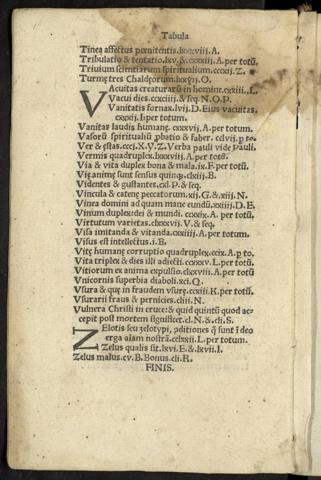 Tabula
Tineȩ affectus pœnitentis.lxxxviii.A.
Tribulatio & tentatio.lxv.& .cxxxiii.A.per totū.
Triuium scientiarum spiritualium.ccxii.Z.
Turmȩ tres Chaldȩorum.lxxvii.O.
VAcuitas creaturarū in homine.cxiiii.L.
Vacui dies.ccxciii.& seq̄.N.O.P.
Vanitatis fornax.lvij.D. Eius vacuitas.
cxxxij.I.per totum.
Vanitas laudis humanȩ. cxxxvij.A. per totum.
Vasorū spiritualiū ꝓbatio & faber. cclvij.
Ver & ȩstas.cccj.X.y.Z. Verba pauli vide Pauli.
Vermis quadruplex.lxxxviij.A.per totū.
Via & vita duplex bona & mala.ix.F.per totū.
Viȩ animȩ sunt sensus quinqȝ.clxiij.D.
Videntes & gustantes.cd.P.& seq.
Vincula & catenȩ peccatorum.xij.G.& xiii.N.
Vinea domini ad quam mane eundū.xxiiij.D.E.
Vinum duplex:dei & mundi. ccxxix.A. per totū.
Virtutum varietas.clxxxvij.V.& seq.
Visa imitanda & vitanda.cxxiiij.A.per totum.
Visus est intellectus.i.B.
Vitȩ humanȩ corruptio quadruplex.ccix.A.ꝑ to.
Vita triplex & dies illi adiecti.ccxxxv.L.per totū.
Vitiorum ex anima expulsio.clxxviii.A.per totū.
Vnicornis superbia diaboli.xci.Q.
Vsura & quȩ in fraudem vsurȩ.ccxiii.K.per totū.
Vsurarii fraus & pernicies.cliii.N.
Vulnera Christi in cruce:& quid quintū quod accepit
post mortem significet.cl.N.& .cli.S.
ZElotis seu zelotypi, ꝯditiones q̄ sunt ī deo
erga aīam nostrā.cclxxii.L.per totum.
Zelus qualis sit.lxvi.E.& lxvii.I.
Zelus malus.cv.B. Bonus.cli.R.
FINIS.